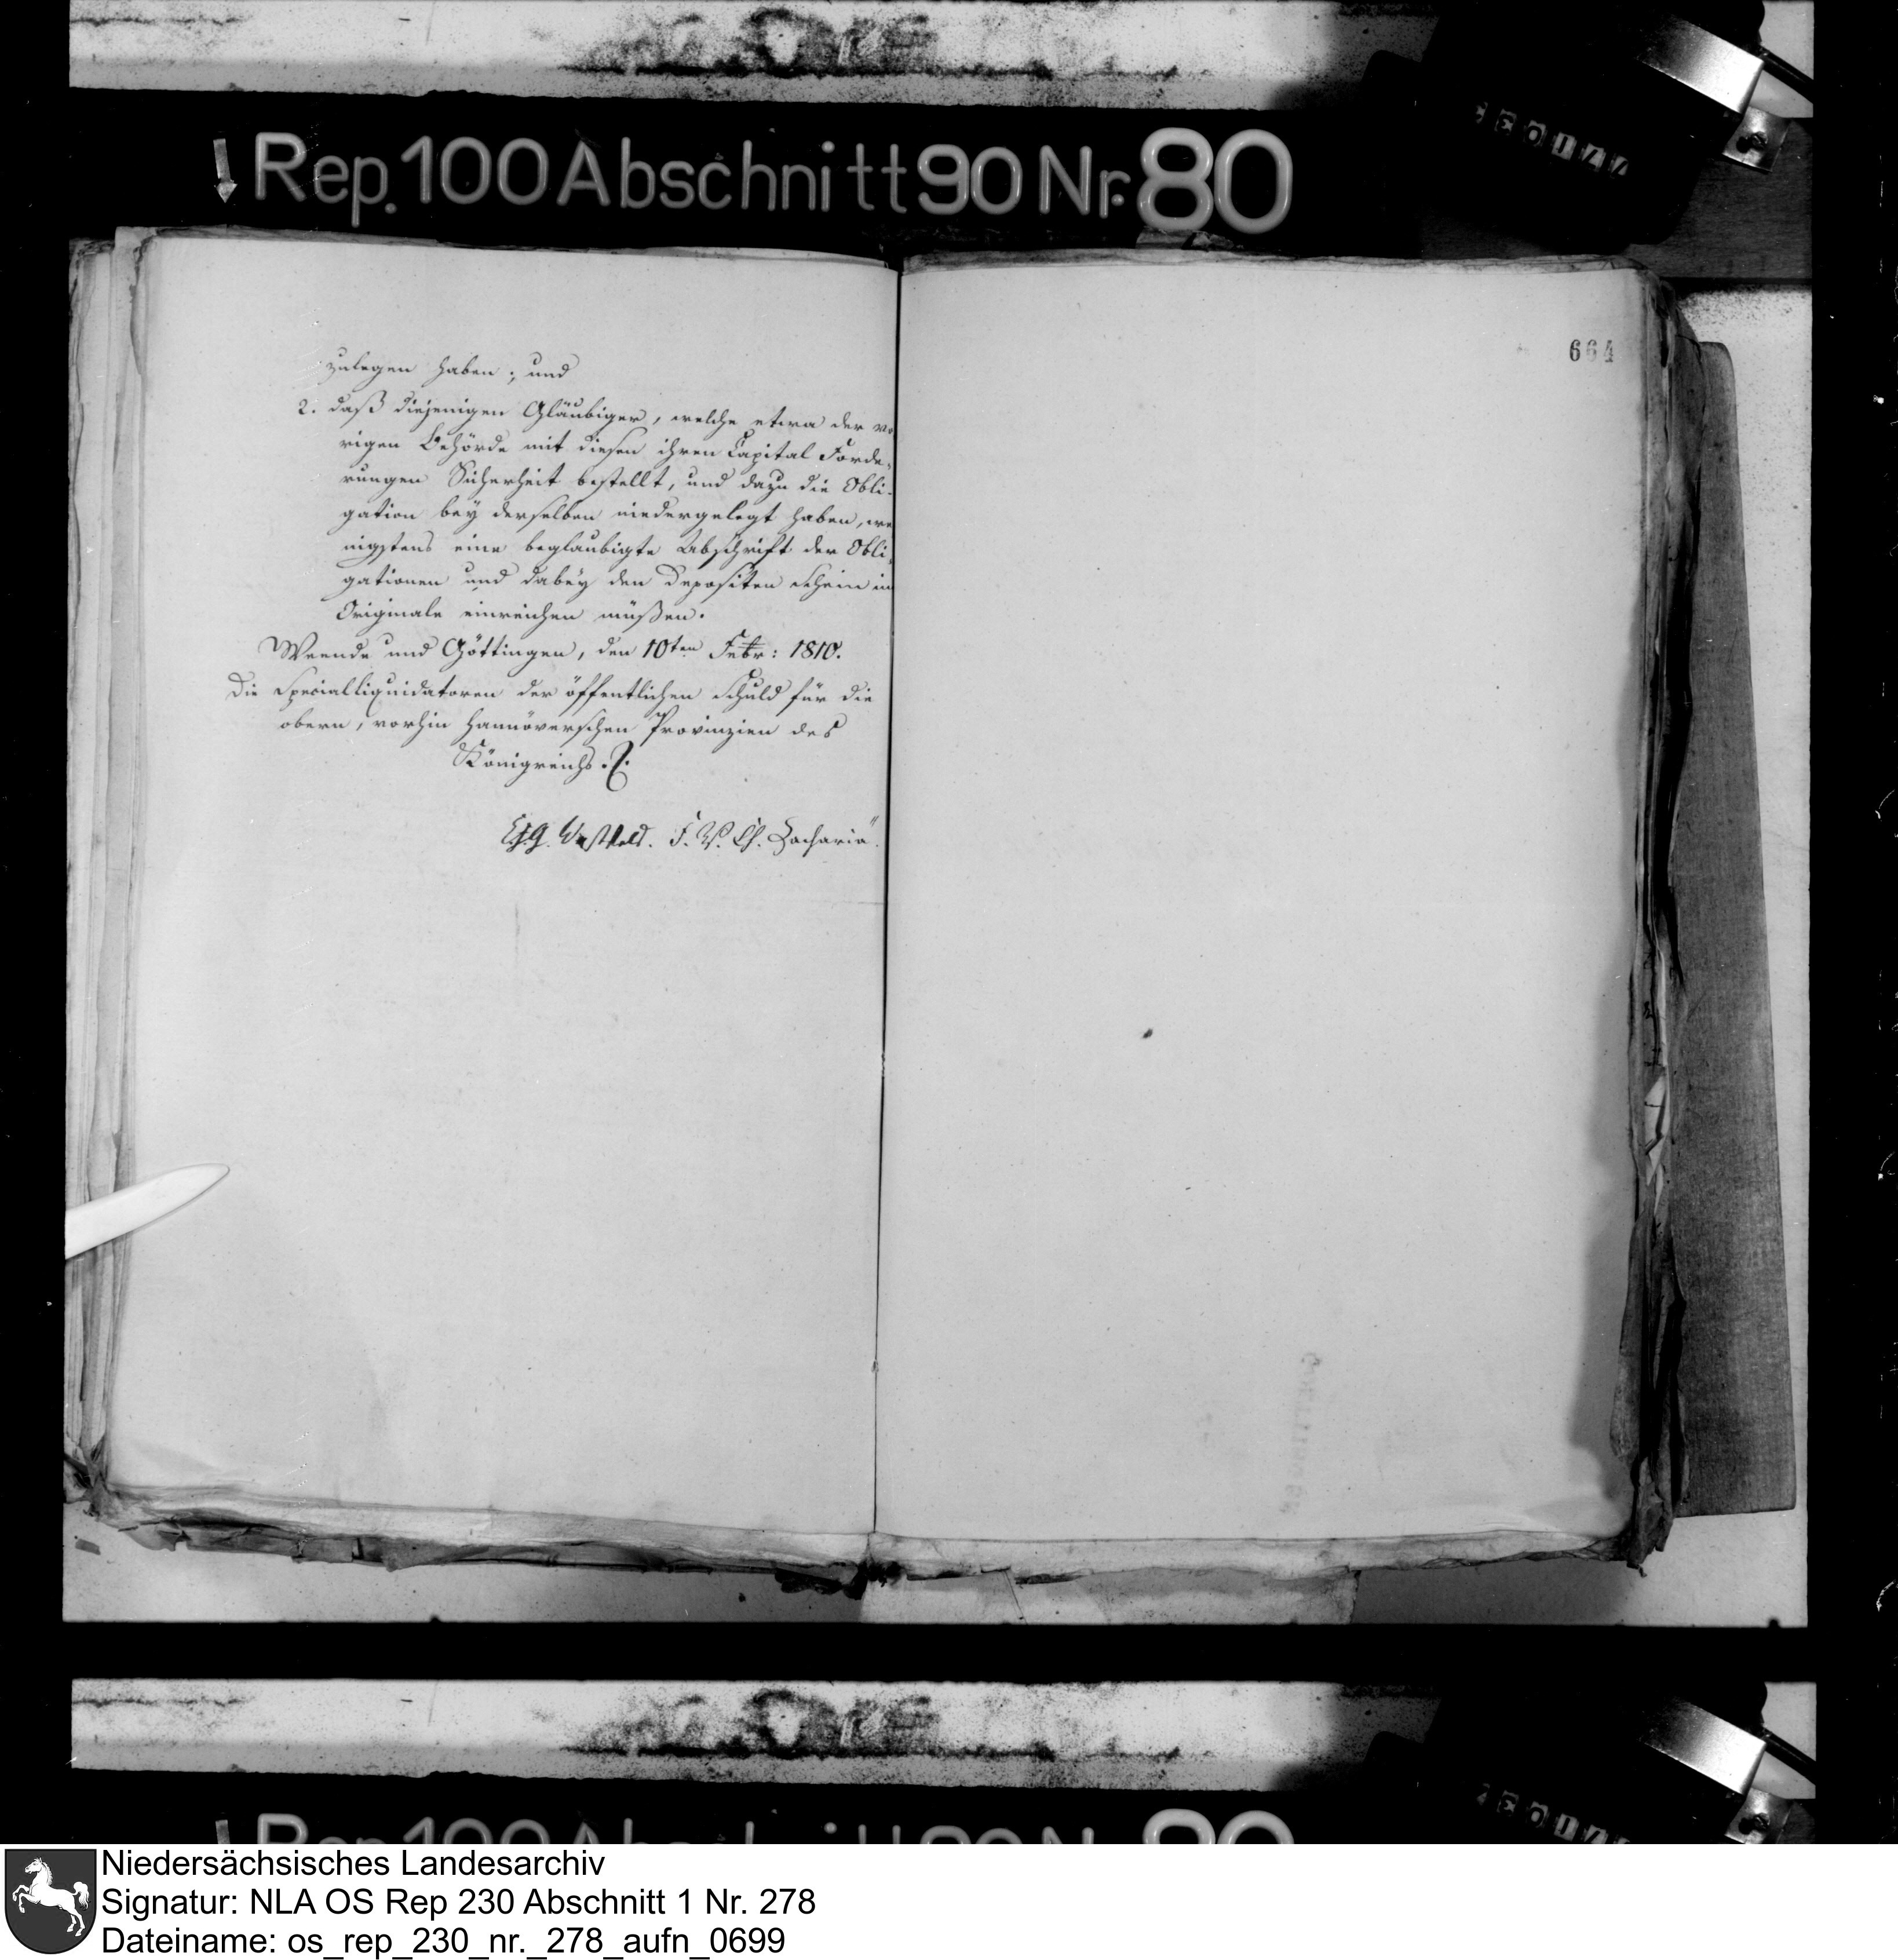 Rep. 100 Abschnitt 90 Nr. 80
664
zulegen haben; und
2. daß diejenigen Gläubiger, welche etwa der vo
rigen Behörde mit diesen ihren Capital Forde-
rungen Sicherheit bestellt, und dazu die Obli-
gation bey derselben niedergelegt haben, we
nigstens eine beglaubigte Abschrift der Obli-
gationen und dabey den Depositen Schein in
Originale einreichen müßen.
Weende und Göttingen, den 10ten Febr: 1810.
Die Specialliquidatoren der öffentlichen Schuld für die
obern, vorhin hannöverschen Provinzien des
Königreichs.
Westfeld. F. W. Ch. Zachariä.
Niedersächsisches Landesarchiv
Signatur: NLA OS Rep 230 Abschnitt 1 Nr. 278
Dateiname: os_rep_230_nr._278_aufn_0699